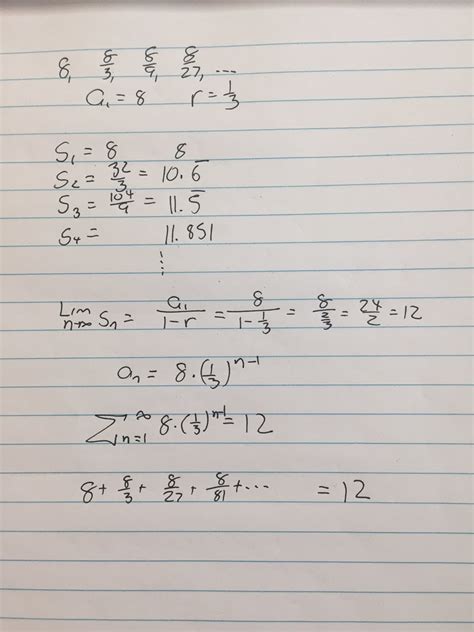 8, 8/3, 8/9, 8/27, ...
a₁ = 8 r = 1/3
S₁ = 8 8
S₂ = 32/3 = 10.6̅
S₃ = 104/9 = 11.5̅
S₄ = 11.851
⋮
Lim n→∞ Sₙ = a₁/(1-r) = 8/(1-1/3) = 8/(2/3) = 24/2 = 12
aₙ = 8·(1/3)ⁿ⁻¹
∑ₙ₌₁^∞ 8·(1/3)ⁿ⁻¹ = 12
8 + 8/3 + 8/27 + 8/81 + ... = 12